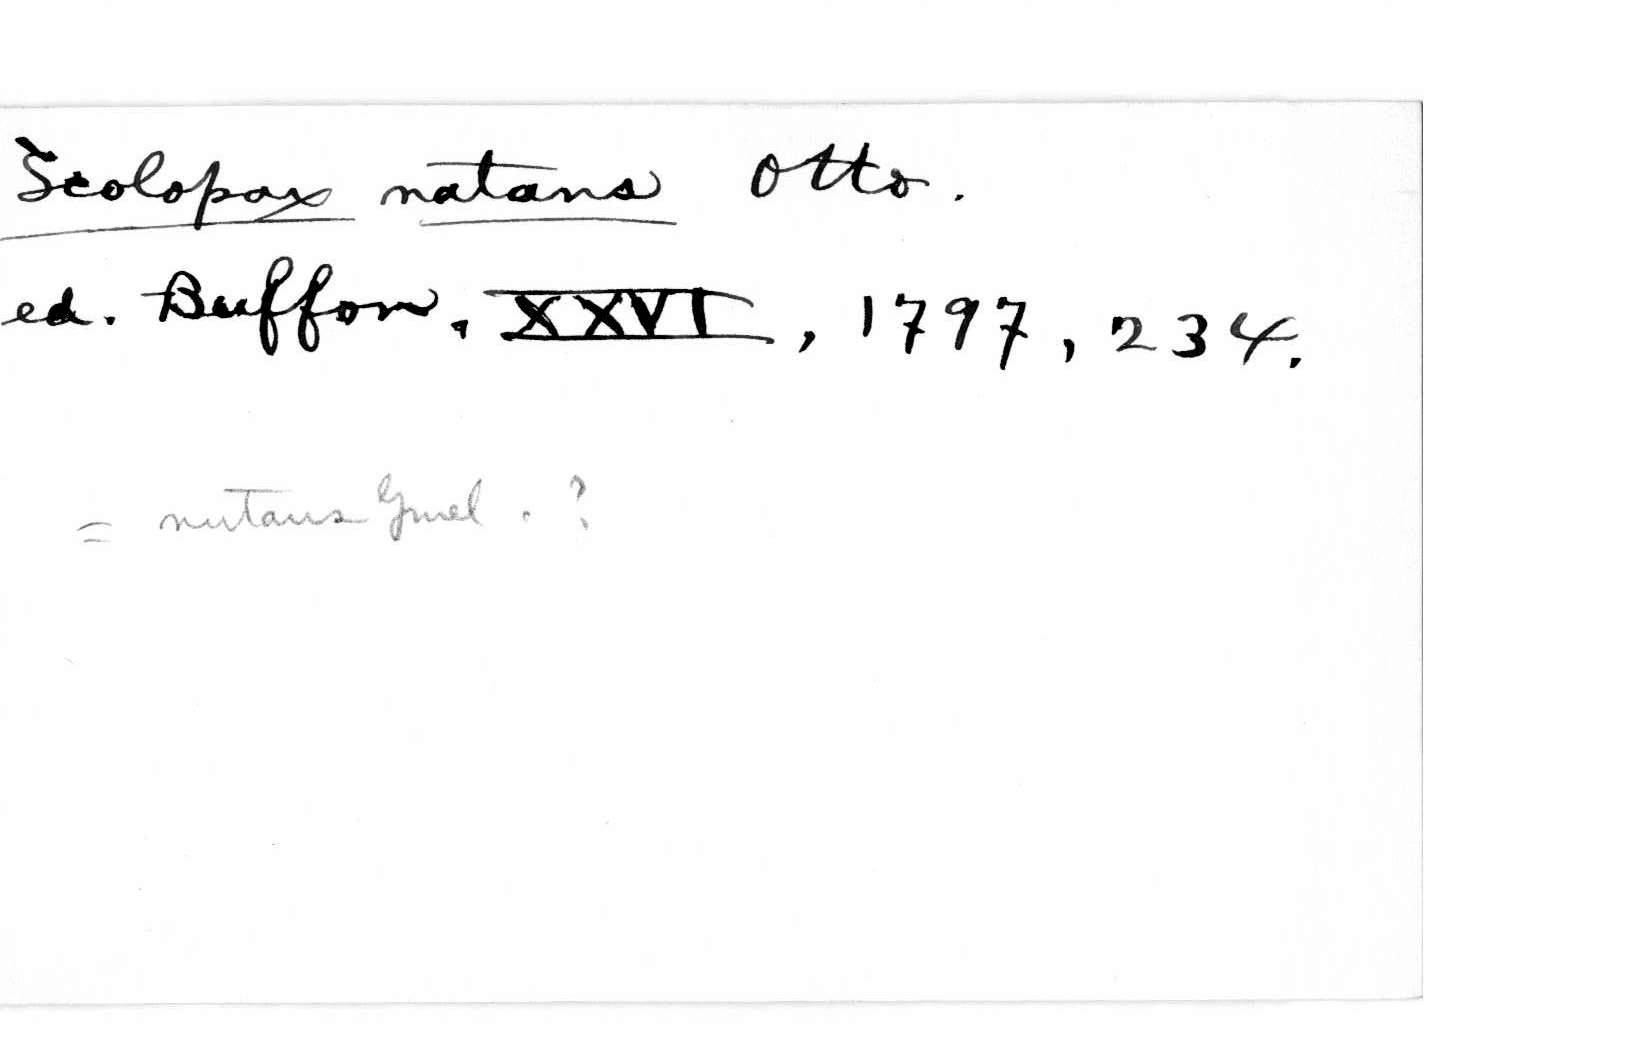 Scolopax natans Otto.
ed. Buffon, XXVI, 1797, 234.
= nutans Gmel. ?